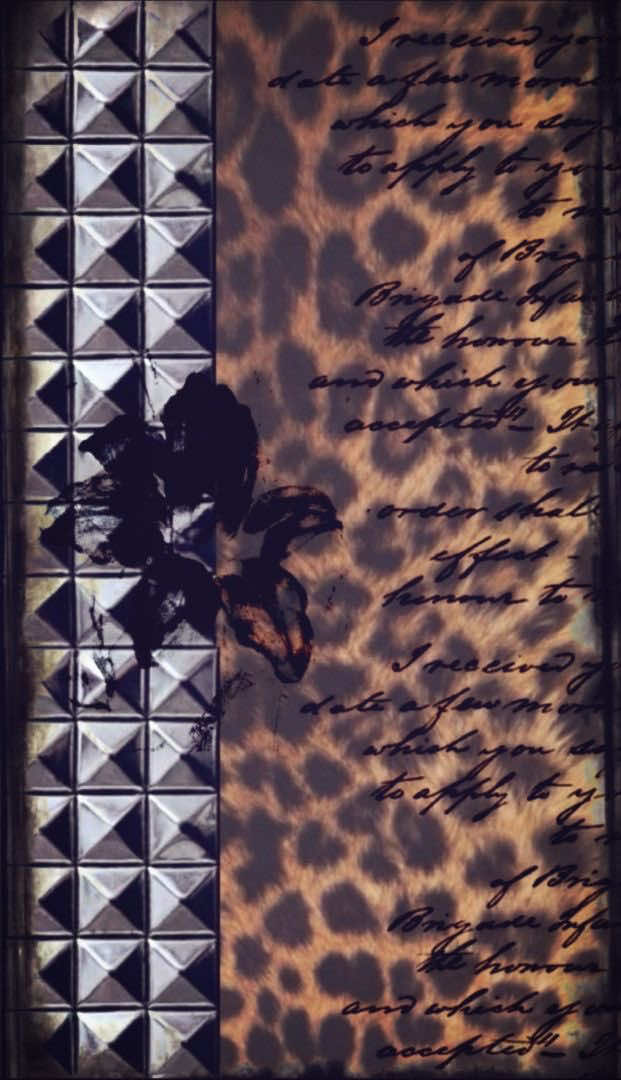 I received yo
date a few morn
which you say
to apply to you
to
of Brig
Brigade infan
the honour
and which your
accepted" It
to
order shall
effect -
honour to
I received y
date a few mor
which you sa
to apply to y
to
of Brig
Brigade infa
the honour
and which yo
accepted"